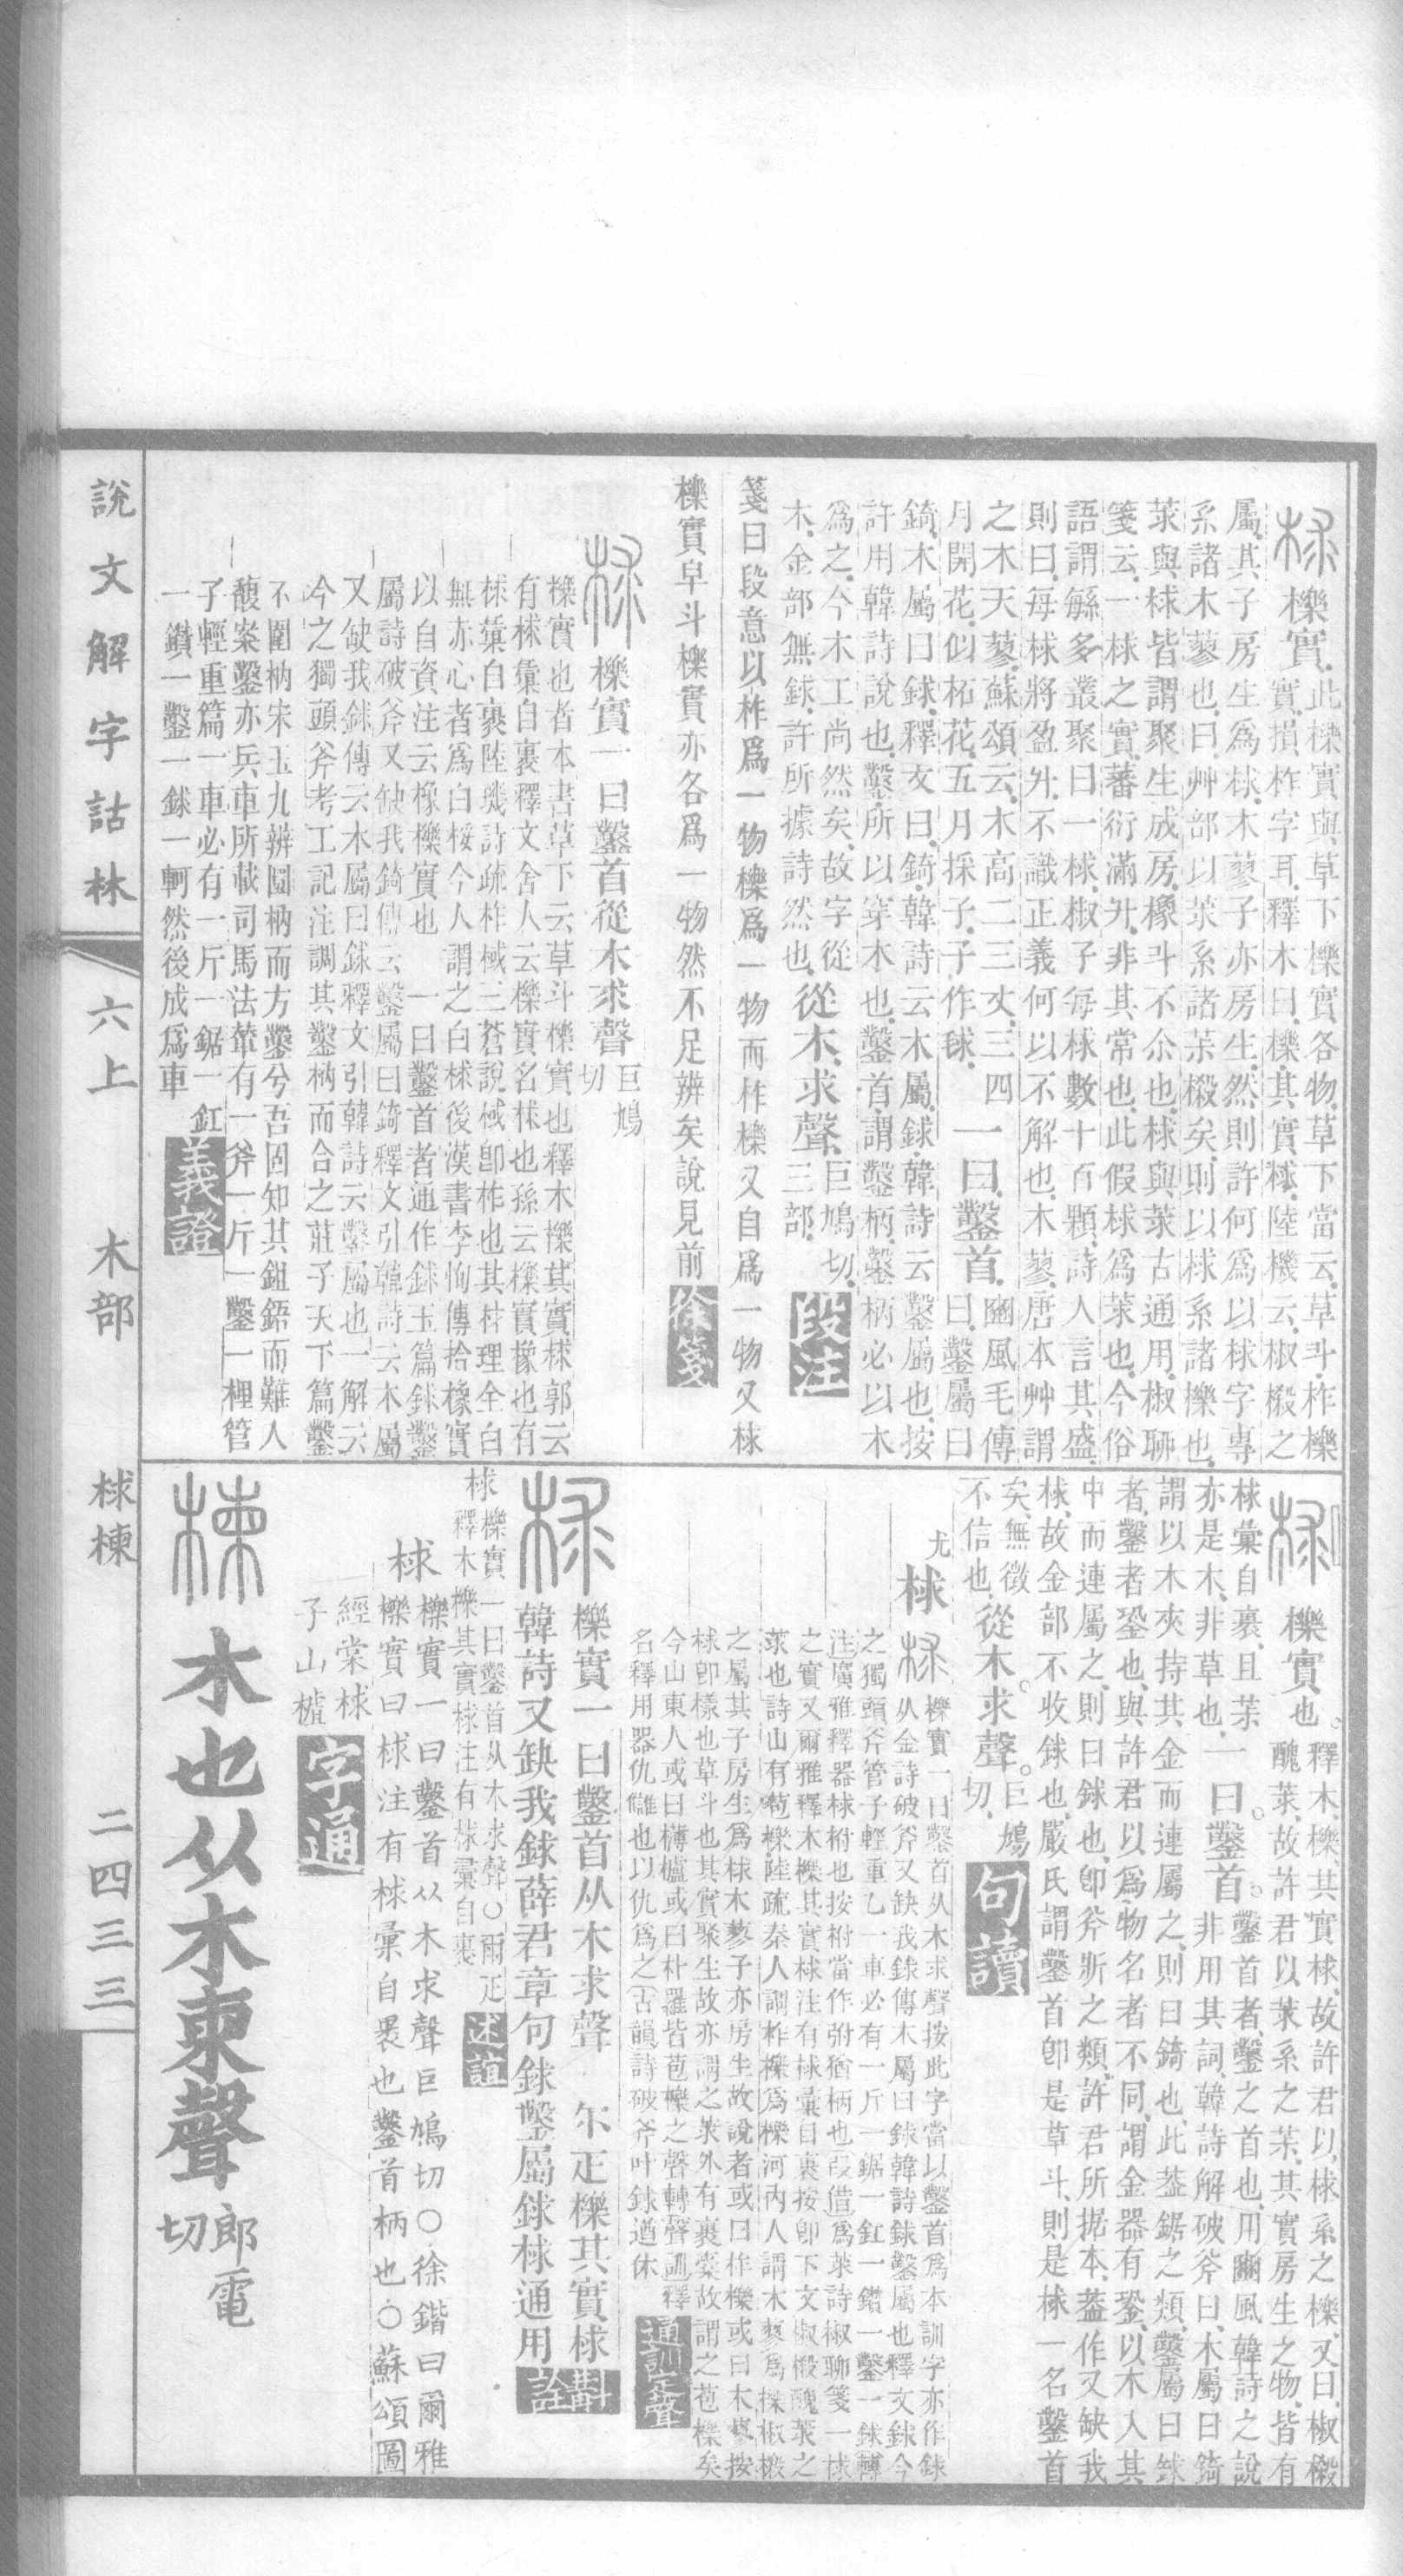 梂櫟實此櫟實與草下櫟實各物草下當云草斗柞櫟
實實損柞字耳釋木曰櫟其實梂陸機云椒樧之
屬其子房生爲梂木蓼子亦房生然則許何爲以梂字專
系諸木蓼也曰艸部以萊系諸茮樧矣則以梂系諸櫟也
莍與梂皆謂聚生成房橡斗不尒也梂與莍古通用椒聊
箋云一梂之實蕃衍滿升非其常也此假梂爲莍也今俗
語謂緐多叢聚曰一梂椒子每梂數十百顆詩人言其盛
則曰每梂將盈升不識正義何以不解也木蓼唐本艸謂
之木天蓼蘇頌云木高二三丈三四
月開花似柘花五月採子子作毬
一曰鑿首豳風毛傳曰鑿屬曰
錡木屬曰銶釋文曰錡韓詩云木屬銶韓詩云鑿屬也按
許用韓詩說也鑿所以穿木也鑿首謂鑿柄鑿柄必以木
爲之今木工尚然矣故字從
木金部無銶許所據詩然也
從木求聲巨鳩切三部段注
箋曰段意以柞爲一物櫟爲一物而柞櫟又自爲一物又梂
櫟實皁斗櫟實亦各爲一物然不足辨矣說見前徐箋
梂櫟實一曰鑿首從木求聲巨鳩切
櫟實也者本書草下云草斗櫟實也釋木櫟其實梂郭云
有梂彙自裹釋文舍人云櫟實名梂也孫云櫟實橡也有
梂彙自裹陸璣詩疏柞棫三蒼說棫卽柞也其材理全白
無赤心者爲白桵今人謂之白梂後漢書李恂傳拾橡實
以自資注云橡櫟實也 一曰鑿首者通作銶玉篇銶鑿
屬詩破斧又缺我錡傳云鑿屬曰錡釋文引韓詩云木屬
又缺我銶傳云木屬曰銶釋文引韓詩云鑿屬也一解云
今之獨頭斧考工記注調其鑿枘而合之莊子天下篇鑿
不圍枘宋玉九辨圜枘而方鑿兮吾固知其鉏鋙而難入
馥案鑿亦兵車所載司馬法輦有一斧一斤一鑿一梩管
子輕重篇一車必有一斤一鋸一釭
一鑽一鑿一銶一軻然後成爲車義證
梂櫟實也釋木櫟其實梂故許君以梂系之櫟又曰椒樧
醜莍故許君以莍系之茮其實房生之物皆有
梂彙自裹且茮
亦是木非草也
一曰鑿首鑿首者鑿之首也用豳風韓詩之說
非用其詞韓詩解破斧曰木屬曰錡
謂以木夾持其金而連屬之則曰錡也此葢鋸之類鑿屬曰銶
者鑿者銎也與許君以爲物名者不同謂金器有銎以木入其
中而連屬之則曰銶也卽斧斨之類許君所據本葢作又缺我
梂故金部不收銶也嚴氏謂鑿首卽是草斗則是梂一名鑿首
矣無徵
不信也
從木求聲巨鳩切句讀
尤
梂梂櫟實一曰鑿首从木求聲按此字當以鑿首爲本訓字亦作銶
从金詩破斧又缺我銶傳木屬曰銶韓詩銶鑿屬也釋文銶今
之獨頭斧管子輕重乙一車必有一斤一鋸一釭一鑽一鑿一銶轉
注廣雅釋器梂柎也按柎當作弣猶柄也叚借爲莍詩椒聊箋一梂
之實又爾雅釋木櫟其實梂注有梂彙自裹按卽下文椒樧醜莍之
莍也詩山有苞櫟陸疏秦人謂柞櫟爲櫟河內人謂木蓼爲櫟椒樧
之屬其子房生爲梂木蓼子亦房生故說者或曰柞櫟或曰木蓼按
梂卽樣也草斗也其實聚生故亦謂之莍外有裹橐故謂之苞櫟矣
今山東人或曰欂櫨或曰朴羅皆苞櫟之聲轉聲訓釋
名釋用器仇讎也以仇爲之古韻詩破斧叶銶遒休通訓定聲
梂櫟實一曰鑿首从木求聲 尒正櫟其實梂
韓詩又缺我銶薛君章句銶鑿屬銶梂通用斠詮
梂櫟實一曰鑿首从木求聲○爾疋
釋木櫟其實梂注有梂彙自裹述誼
梂櫟實一曰鑿首从木求聲巨鳩切○徐鍇曰爾雅
櫟實曰梂注有梂彙自裹也鑿首柄也○蘇頌圖
經棠梂
子山樝字通
楝木也从木柬聲郎電切
說文解字詁林 六上 木部 梂楝 二四三三